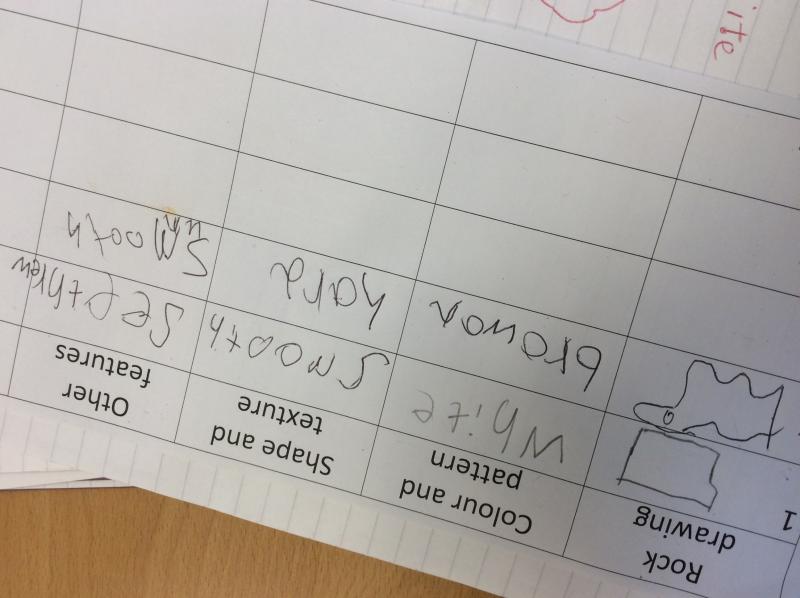 Rock drawing
Colour and pattern
Shape and texture
Other features
1
white
smooth
seethrew
browon
hard
smooth
un
ite